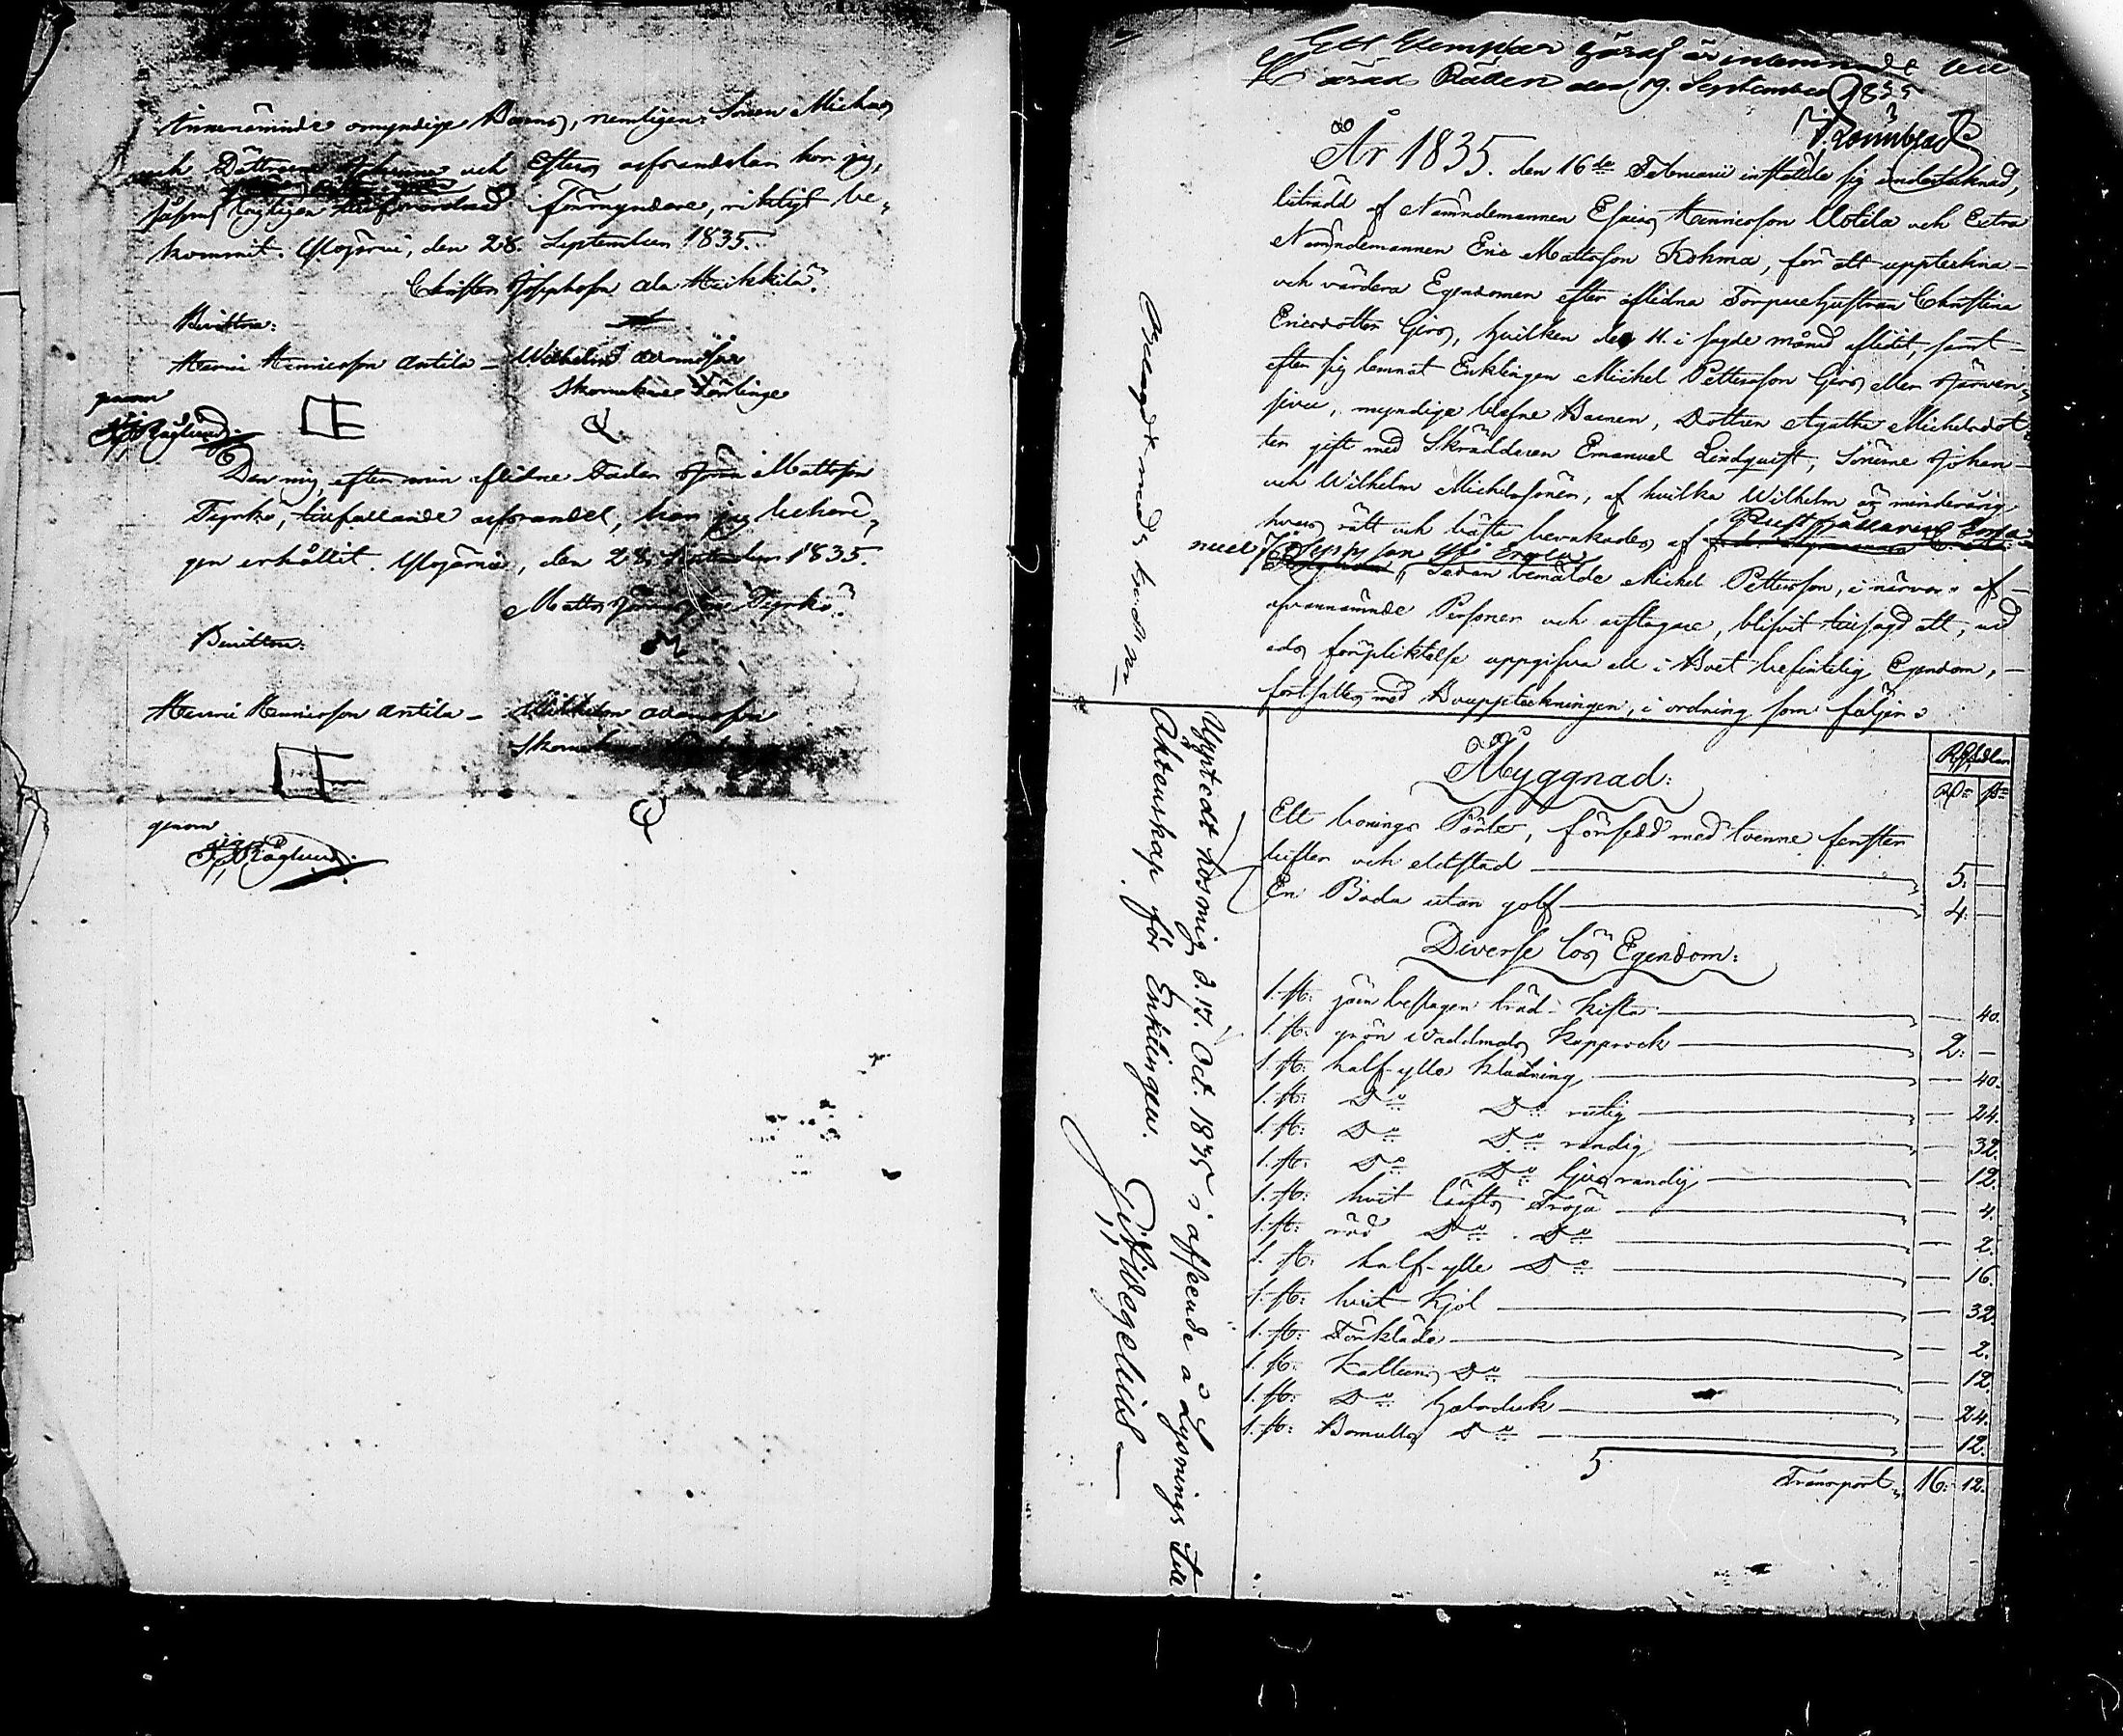 omyndige Barns, nemligen Sonen Michas
och Döttrarne och Esters arfvandelar har jag,
såsom lagligen förordnad förmyndare, riktigt be-
kommit. Ylöjärvi, den 28. September 1835.
Christer Josephsson ala Heikkilä.
Bevittna:
Henric Henricsson Antila – Wilhelm Adamsson
Skomakare
genom
Den mig, efter min aflidne Fader Mattsson
Tyrkö, tillfallande arfvandel, har jag
gen erhållit. Ylöjärvi, den 28. September 1835.
Matts Tyrkö.
Bevittna:
Henric Henricsson Antila – Wilhelm Adamsson
genom
Ett Exemplar häraf är inlemnadt till
Härads Rätten den 19. September 1835
År 1835. den 16de Februarii inställde sig undertecknad,
biträdd af Nämndemannen Esaias Henricsson Uotila och Extra
Nämndemannen Eric Mattsson Kohma, för att uppteckna
och värdera Egendomen efter aflidna Torpare hustrun Christina
Ericsdotter Girs, hvilken den 11. i sagde månad aflidit, samt
efter sig lemnat Enklingen Michel Pettersson Girs eller Järven-
sivu, myndige blefne Barnen, Dottren Agatha Michelsdot-
ter gift med Skräddaren Emanuel Lindquist, Sönerne Johan
och Wilhelm Michelssöner, af hvilka Wilhelm är minderårig
hvars rätt och bästa bevakades af Rusthållaren Ema-
nuel Josephsson
Sedan bemälde Michel Pettersson, i närvaro af
ofvannämnde Personer och arftagare, blifvit tillsagd att, vid
eds förpliktelse uppgifva all i Boet befintelig Egendom,
fortsattes med Bouppteckningen, i ordning som följer:
Belagdt med
Uppvist hos mig d. 17. Oct. 1835 i afseende å Lysning till
Äktenskap för Enklingen.
Åbyggnad:
Rp: st:
Ett bonings Pörte, försedd med tvenne fenster
lufter och eldstad 5. –
En Boda utan golf 4. –
Diverse lös Egendom:
1. st: järn beslagen träd-Kista – 40.
1. st: grön Vadmals Kapprock 2. –
1. st: half-ylle Klädning – 40.
1. st: Do Do rutig – 24.
1. st: Do Do randig – 32.
1. st: Do Do ljusrandig – 12.
1. st: hvit lärfts Tröja – 4.
1. st: röd Do Do – 2.
1. st: half-ylle Do – 16.
1. st: hvit Kjol – 32.
1. st: Förkläde – 2.
1. st: Kattuns Do – 12.
1. st: Do halsduk – 24.
1. st: Bomulls Do – 12.
Transport 16: 12.